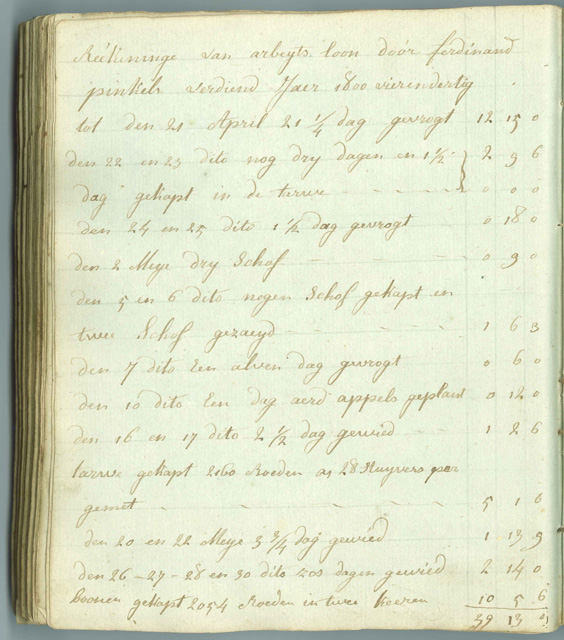 Reékeninge van arbeyts loon door ferdinand
pinkels verdiend Jaer 1800 vierendertig
tot den 21 April 21 1/4 dag gevrogt 12 15 0
den 22 en 23 dito nog dry dagen en 1 1/2 2 9 6
dag gekapt in de terwe 0 0 0
den 24 en 25 dito 1 1/2 dag gevrogt 0 18 0
den 2 Meye dry Schof 0 9 0
den 5 en 6 dito nogen Schof gekapt en
twee Schof gezaeyd 1 6 3
den 7 dito Een alven dag gevrogt 0 6 0
den 10 dito Een dag aerd appels geplant 0 12 0
den 16 en 17 dito 2 1/2 dag gewied 1 2 6
tarwe gekapt 2160 Roeden as 28 Stuyvers per
gemet 5 1 6
den 20 en 22 Meye 3 3/4 dag gewied 1 13 9
den 26 - 27 - 28 en 30 dito zes dagen gewied 2 14 0
boonen gekapt 2054 Roeden in twee keeren 10 5 6
39 13